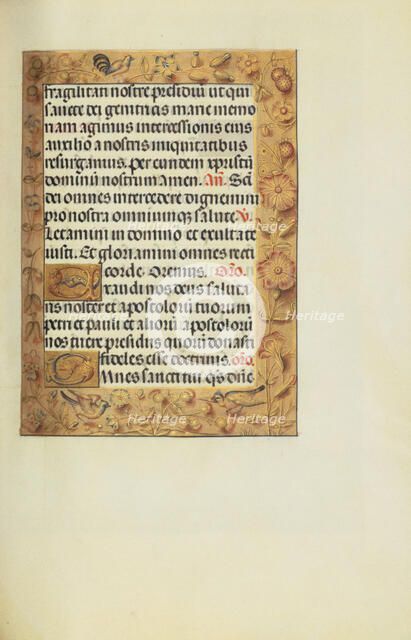 fragilitati nostre presidiuʒ ut qui
sancte dei genitricis marie memo
riam agimus intercessionis eius
auxilio a nostris iniquitatibus
resurgamus. per eundem xpristuʒ
dominū nostrum amen. An̄. Scī
dei omnes intercedere dignemini
pro nostra omniumqʒ salute. V̄.
Letamini in domino et exultate
iusti. Et gloriamini omnes recti
corde. Oremus. Oro.
Exaudi nos deus saluta
ris noster et apostoloꝝ tuorum
petri et pauli et alioꝝ apostoloꝝ
nos tuere presidiis quorū donasti
fideles esse doctrinis. oro.
Omnes sancti tui qs̄ dn̄e
Heritage
Heritage
Heritage
Heritage
Heritage
Heritage